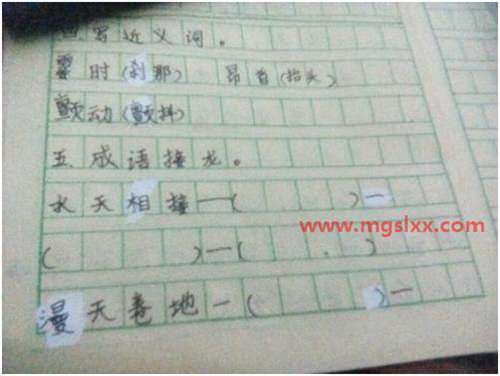 写近义词。
霎时(刹那) 昂首(抬头)
颤动(颤抖)
五.成语接龙。
水天相接一( )一
www.mgslxx.com
( )一( )
漫天卷地一( )一